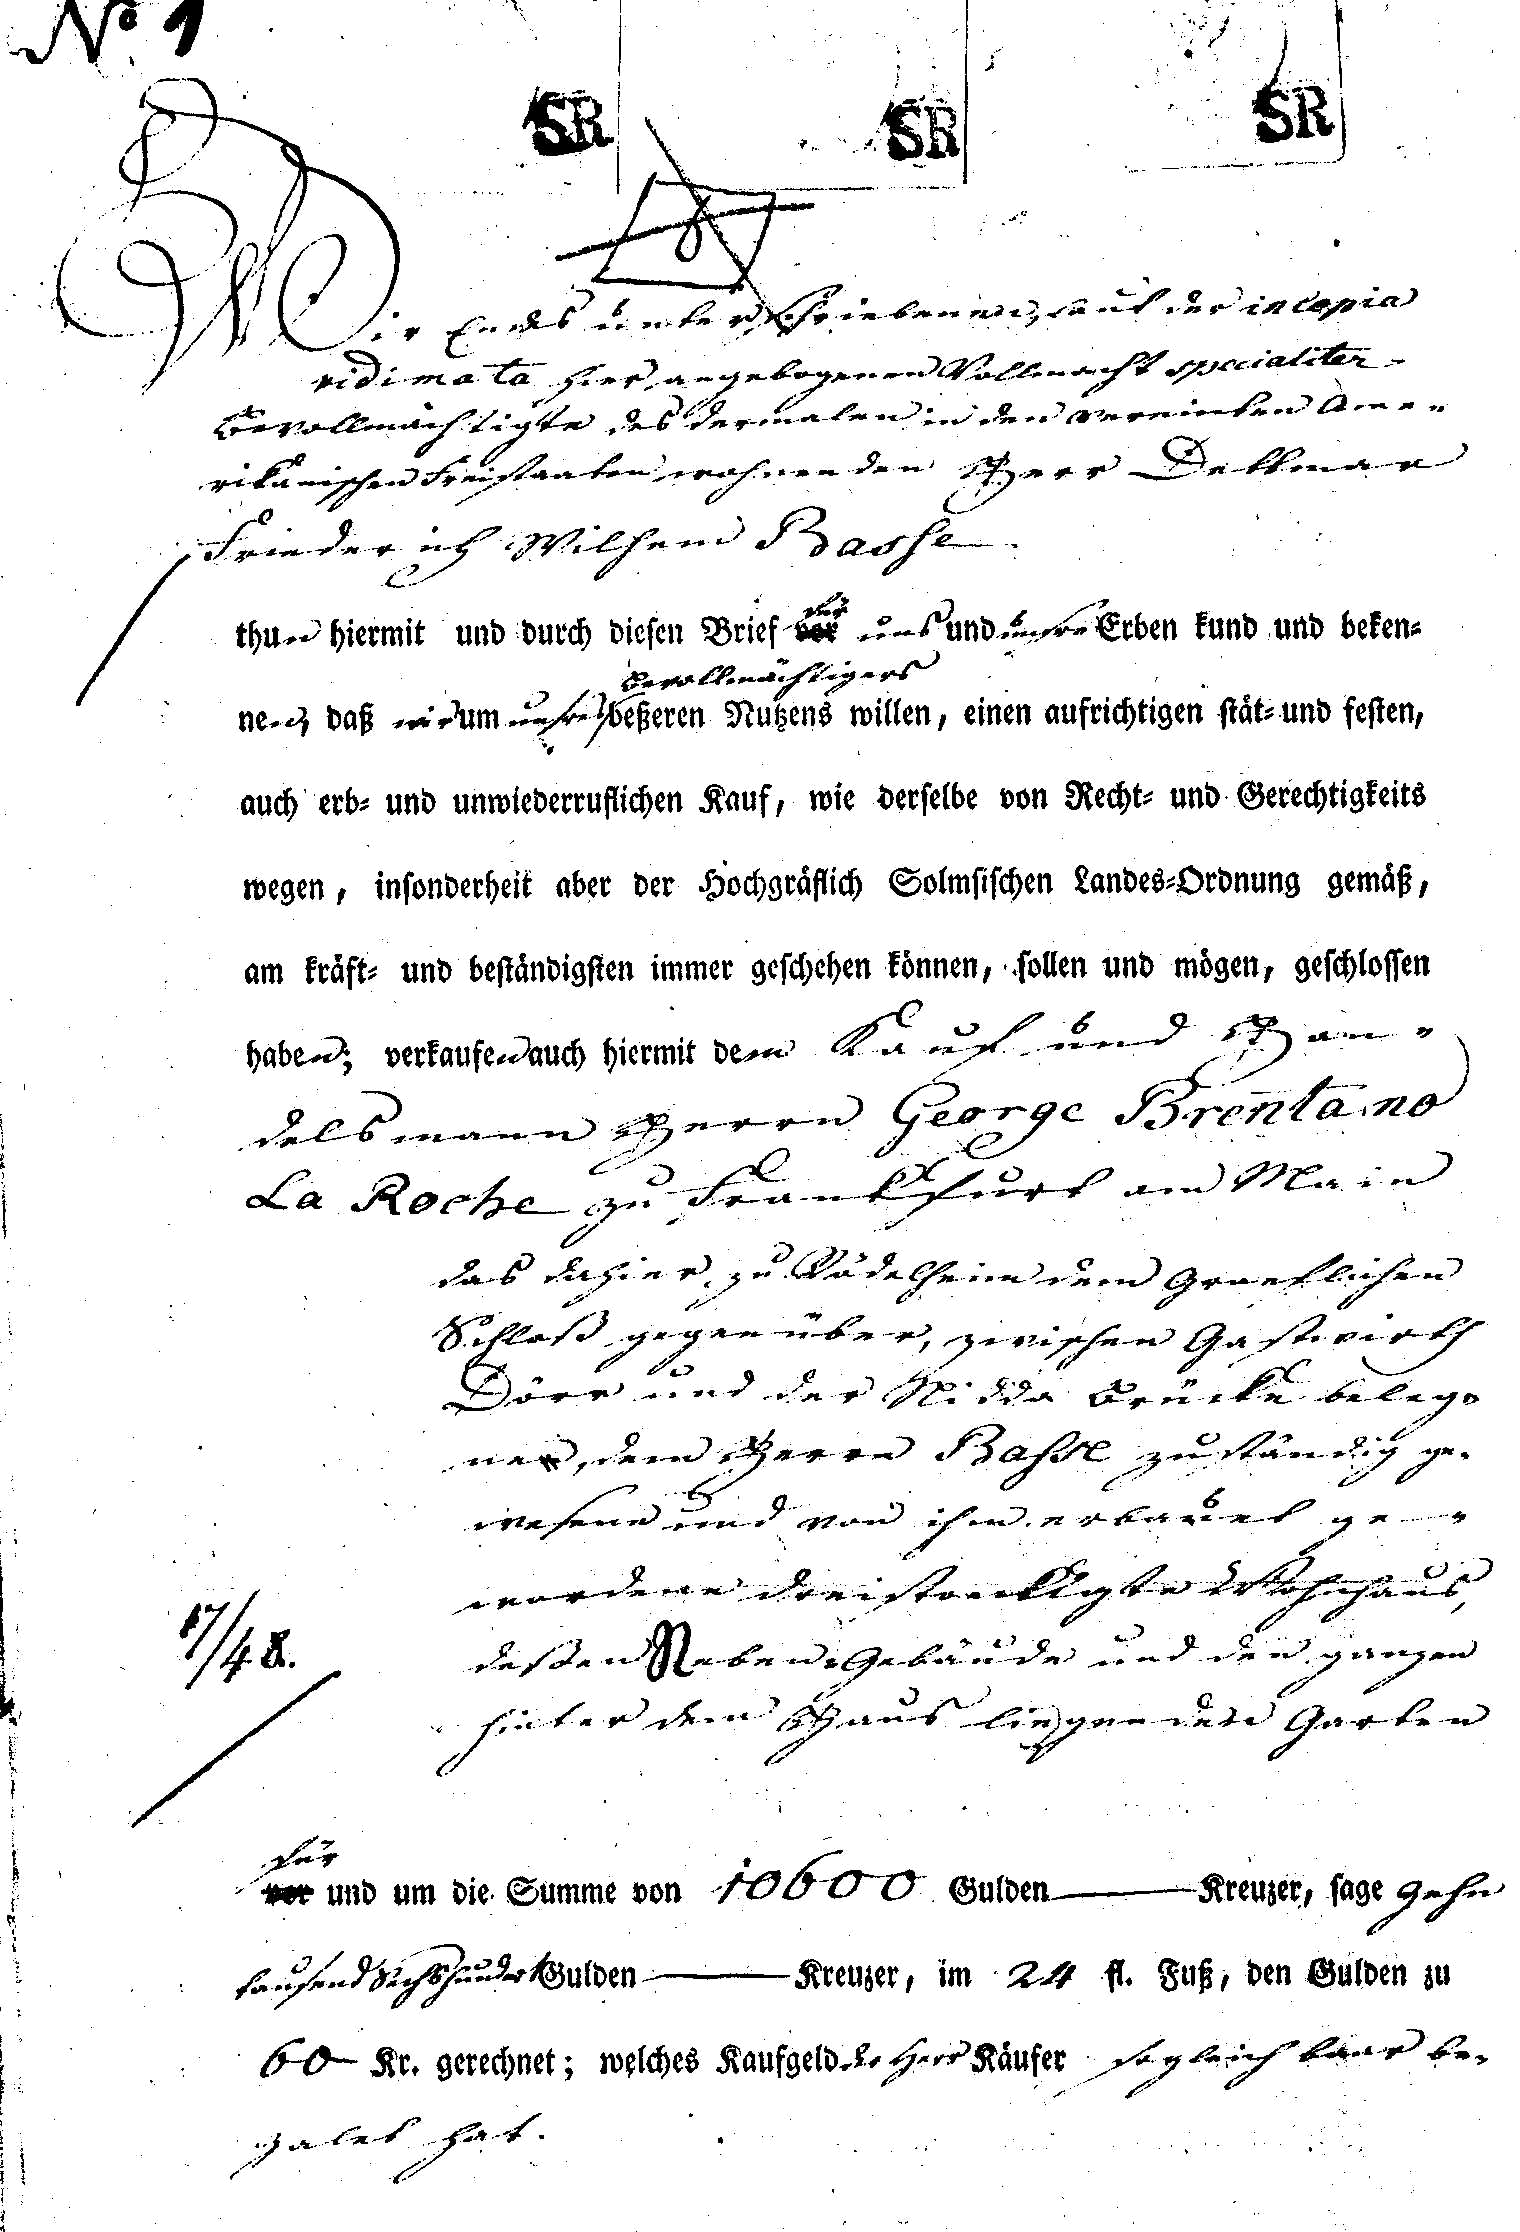 No 1
SR SR SR
Wir Endes unterschriebenen, laut der in copia
vidimata hier angebogenen Vollmacht specialiter
Bevollmächtigte des dermalen in den vereinten Ame-
rikanischen Freistaaten wohnenden Herr Dettmar
Friederich Wilhem Basse
für
thun hiermit und durch diesen Brief vor uns und unsre Erben kund und beken-
bevollmächtigers
nen, daß wir um unsres beßeren Nutzens willen, einen aufrichtigen stät- und festen,
auch erb- und unwiederruflichen Kauf, wie derselbe von Recht- und Gerechtigkeits
wegen, insonderheit aber der Hochgräflich Solmsischen Landes-Ordnung gemäß,
am kräft- und beständigsten immer geschehen können, sollen und mögen, geschlossen
haben; verkaufen auch hiermit dem Kauf und Han-
delsmann Herrn George Brentano
La Roche zu Frankfurt am Main
das dahier zu Rödelheim dem Graeflichen
Schloß gegenüber, zwischen Gastwirth
Dörr und der Nidda Brücke beleg-
ne, dem Herrn Basse zuständig ge-
wesene und von ihm erbauet ge-
wordene dreistoeckigte Wohnhaus,
17/48.
deßen Neben-Gebäude und den ganzen
hinter dem Haus liegenden Garten
für
vor und um die Summe von 10600 Gulden — Kreuzer, sage Zehn
tausend Sechshundert Gulden — Kreuzer, im 24 fl. Fuß, den Gulden zu
60 Kr. gerechnet; welches Kaufgeld der Herr Käufer sogleich baar be-
zalet hat.